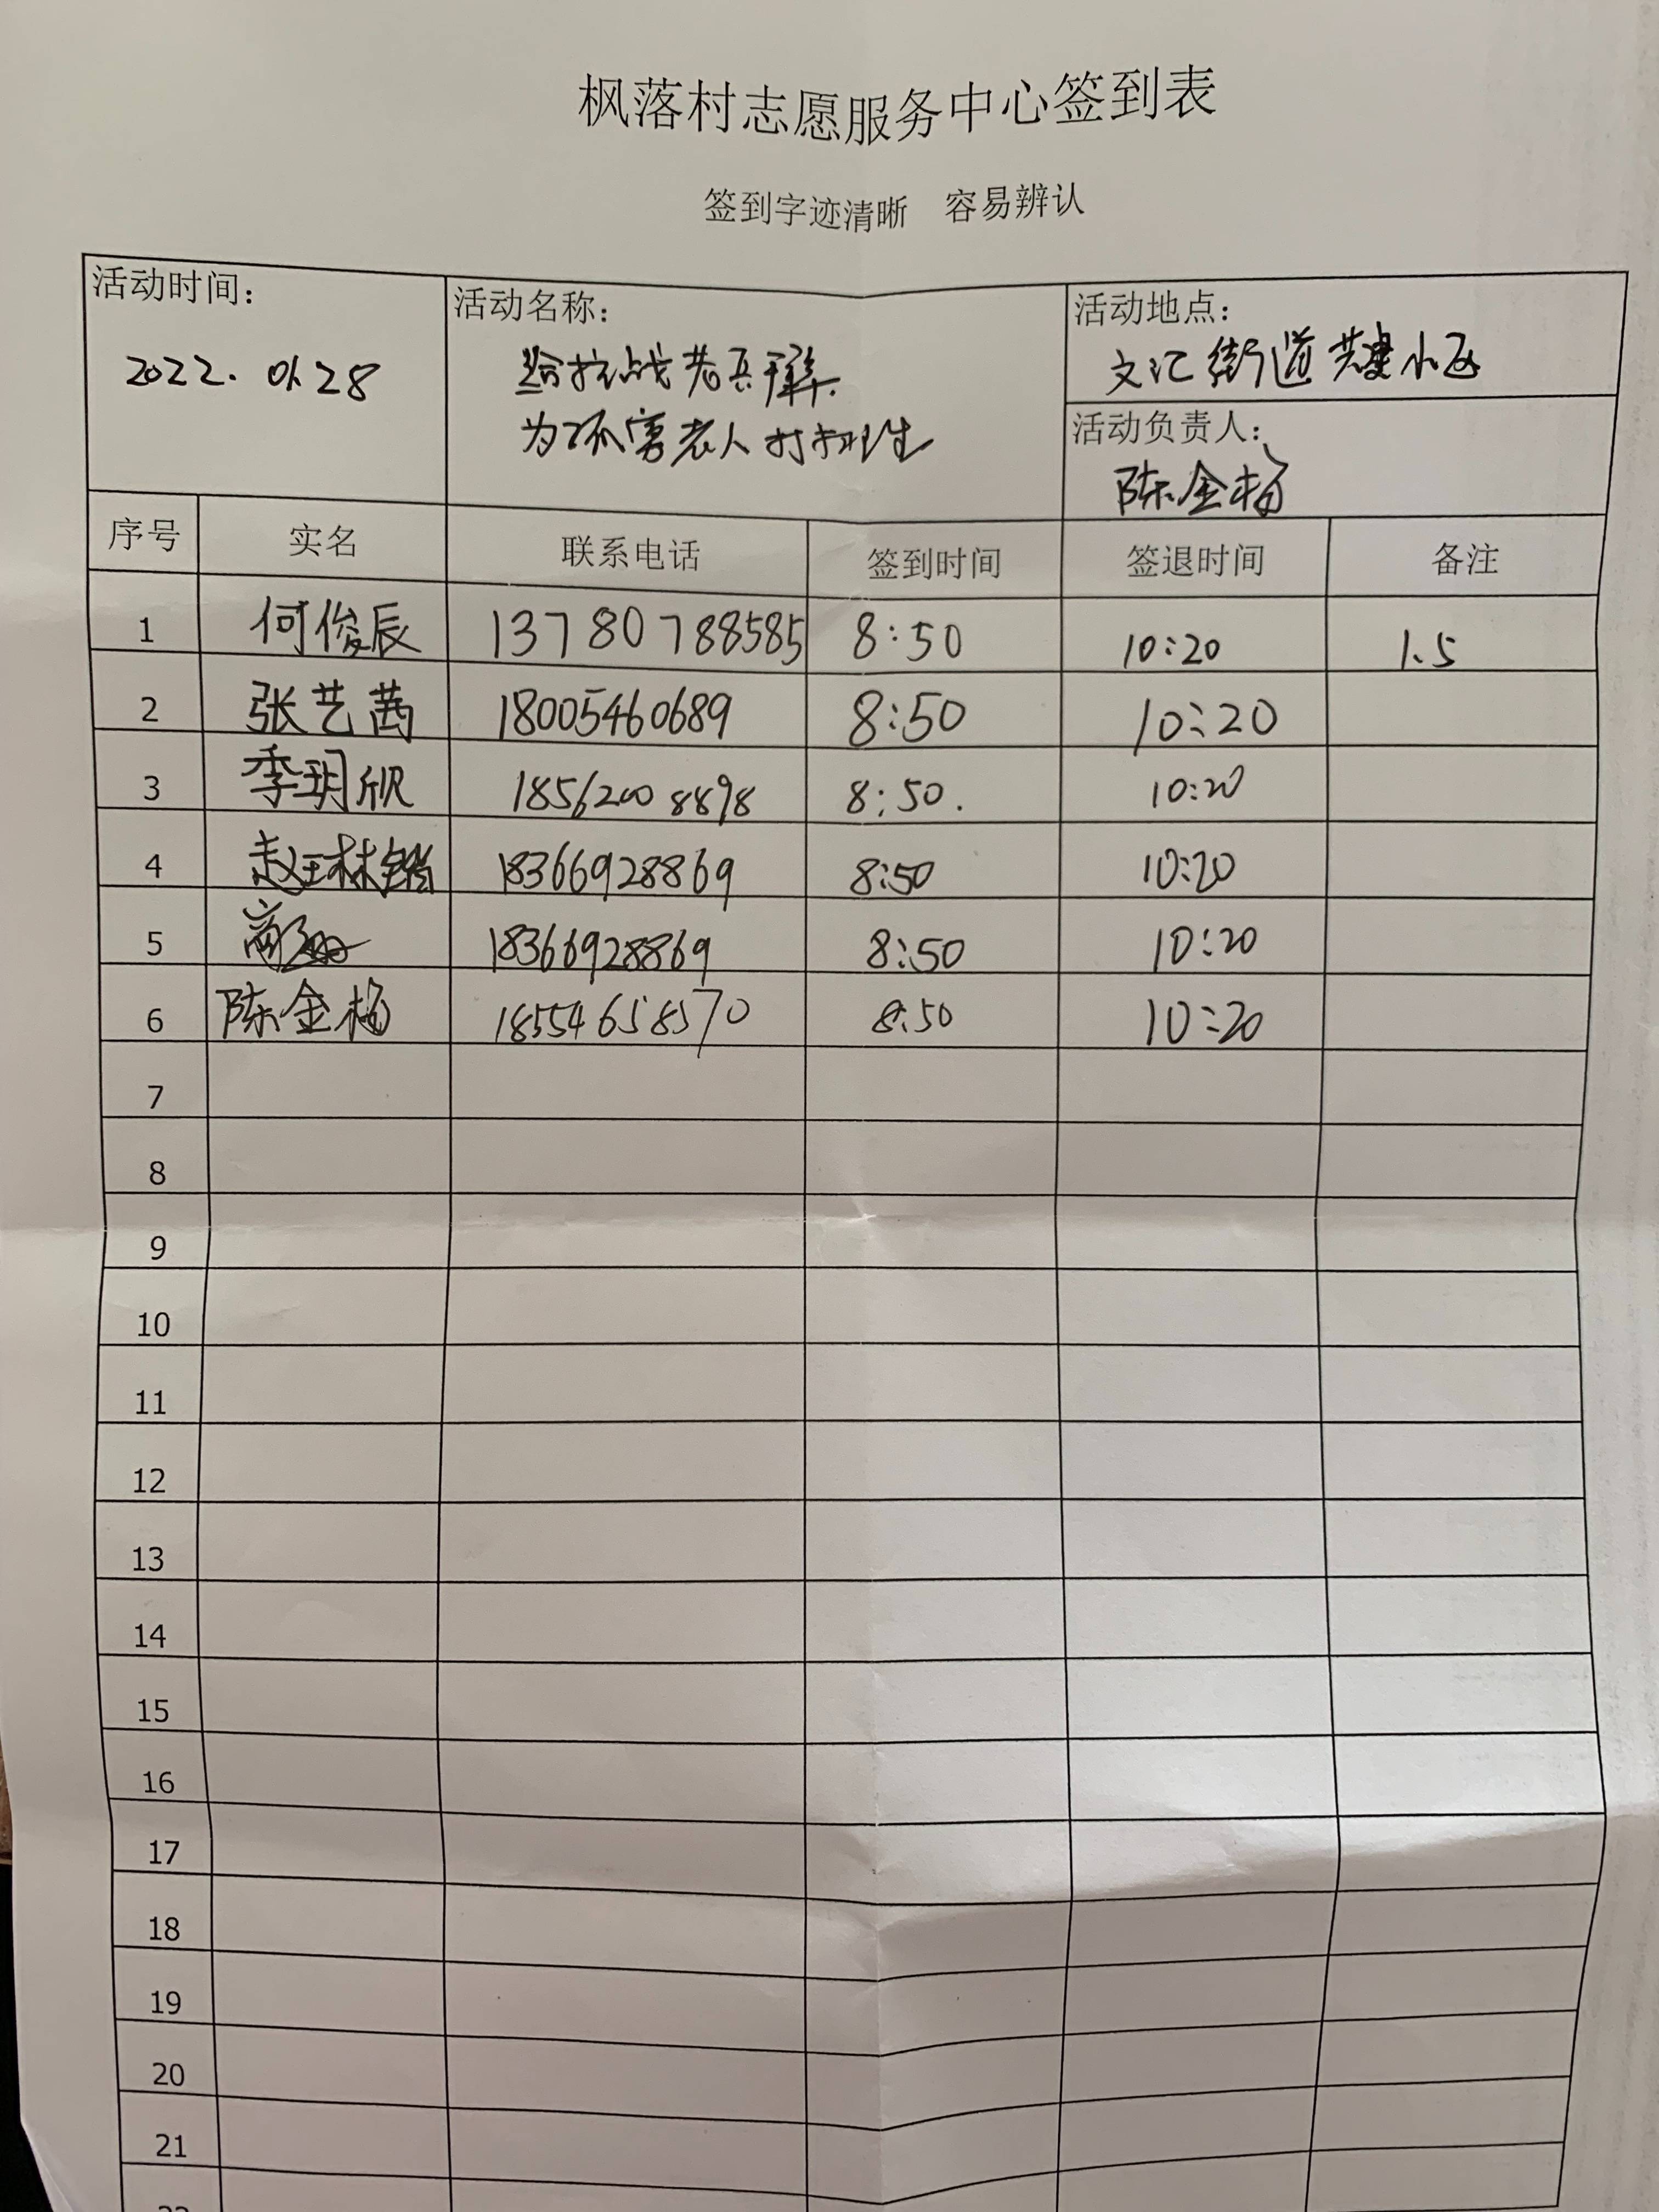 枫落村志愿服务中心签到表
签到字迹清晰 容易辨认
活动时间： 活动名称： 活动地点：
2022.01.28 给抗战老兵 文汇街道 小区
为 老人打扫卫生 活动负责人：
陈金杨
序号 实名 联系电话 签到时间 签退时间 备注
1 何俊辰 13780788585 8:50 10:20 1.5
2 张艺茜 18005460689 8:50 10:20
3 李玥欣 18562008898 8:50. 10:20
4 赵王林 18366928869 8:50 10:20
5 18366928869 8:50 10:20
6 陈金杨 18554658570 8:50 10:20
7
8
9
10
11
12
13
14
15
16
17
18
19
20
21